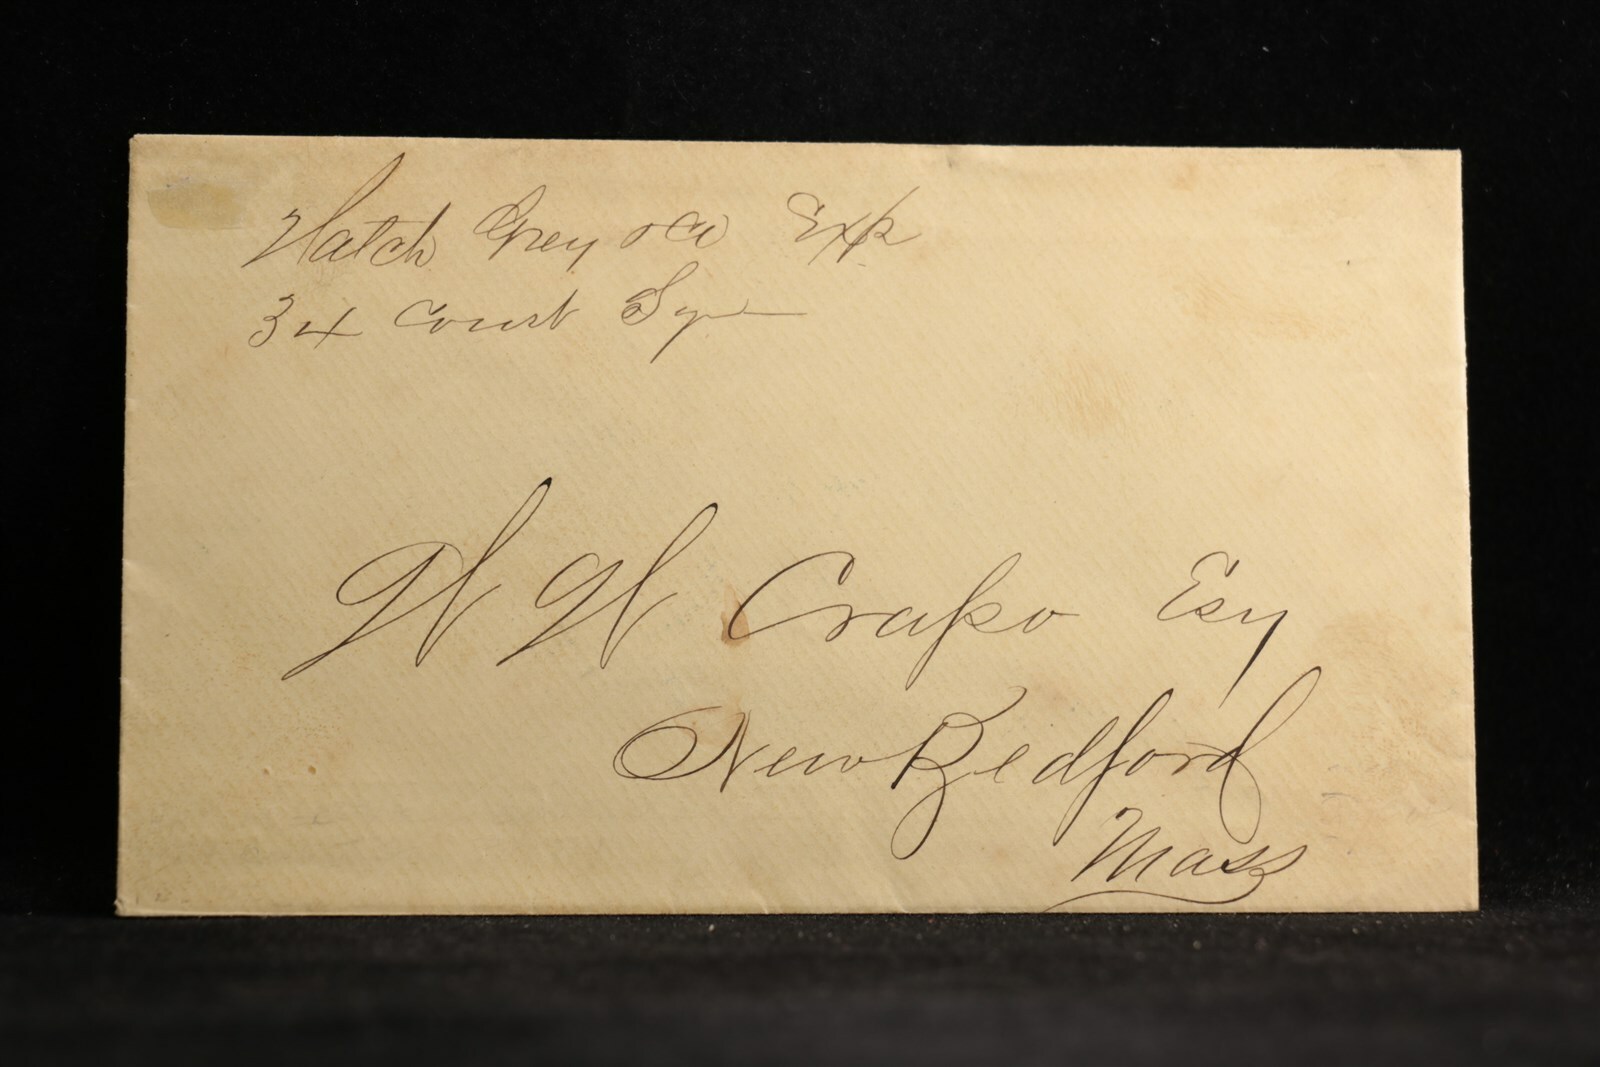 Hatch Grey & Co Exp
34 Court Sqr
W W Crapo Esq
New Bedford
Mass